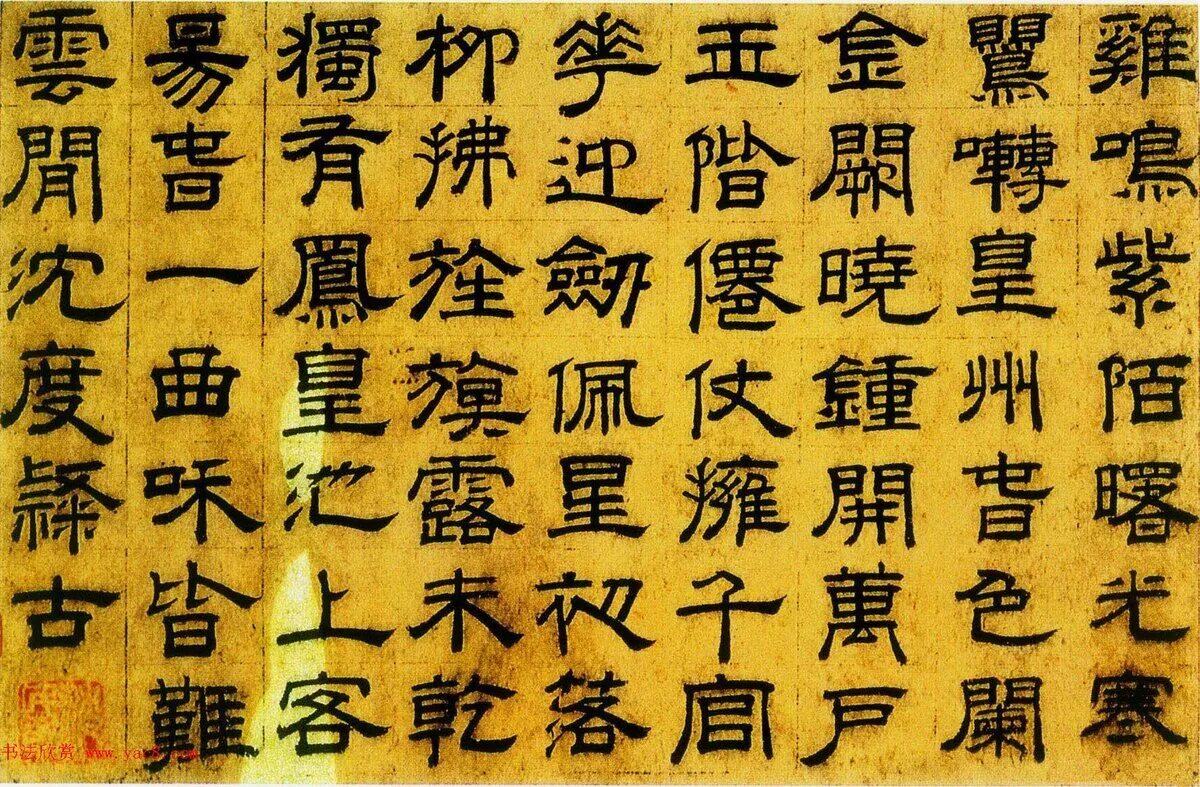 雞鳴紫陌曙光寒
鸎囀皇州旾色闌
金闕曉鍾開萬戶
玉階僊仗擁千官
華迎劒佩星初落
柳拂旌旗露未乾
獨有鳳皇池上客
昜旾一曲咊皆難
雲閒沈度隸古
书法欣赏 www.yac8.com